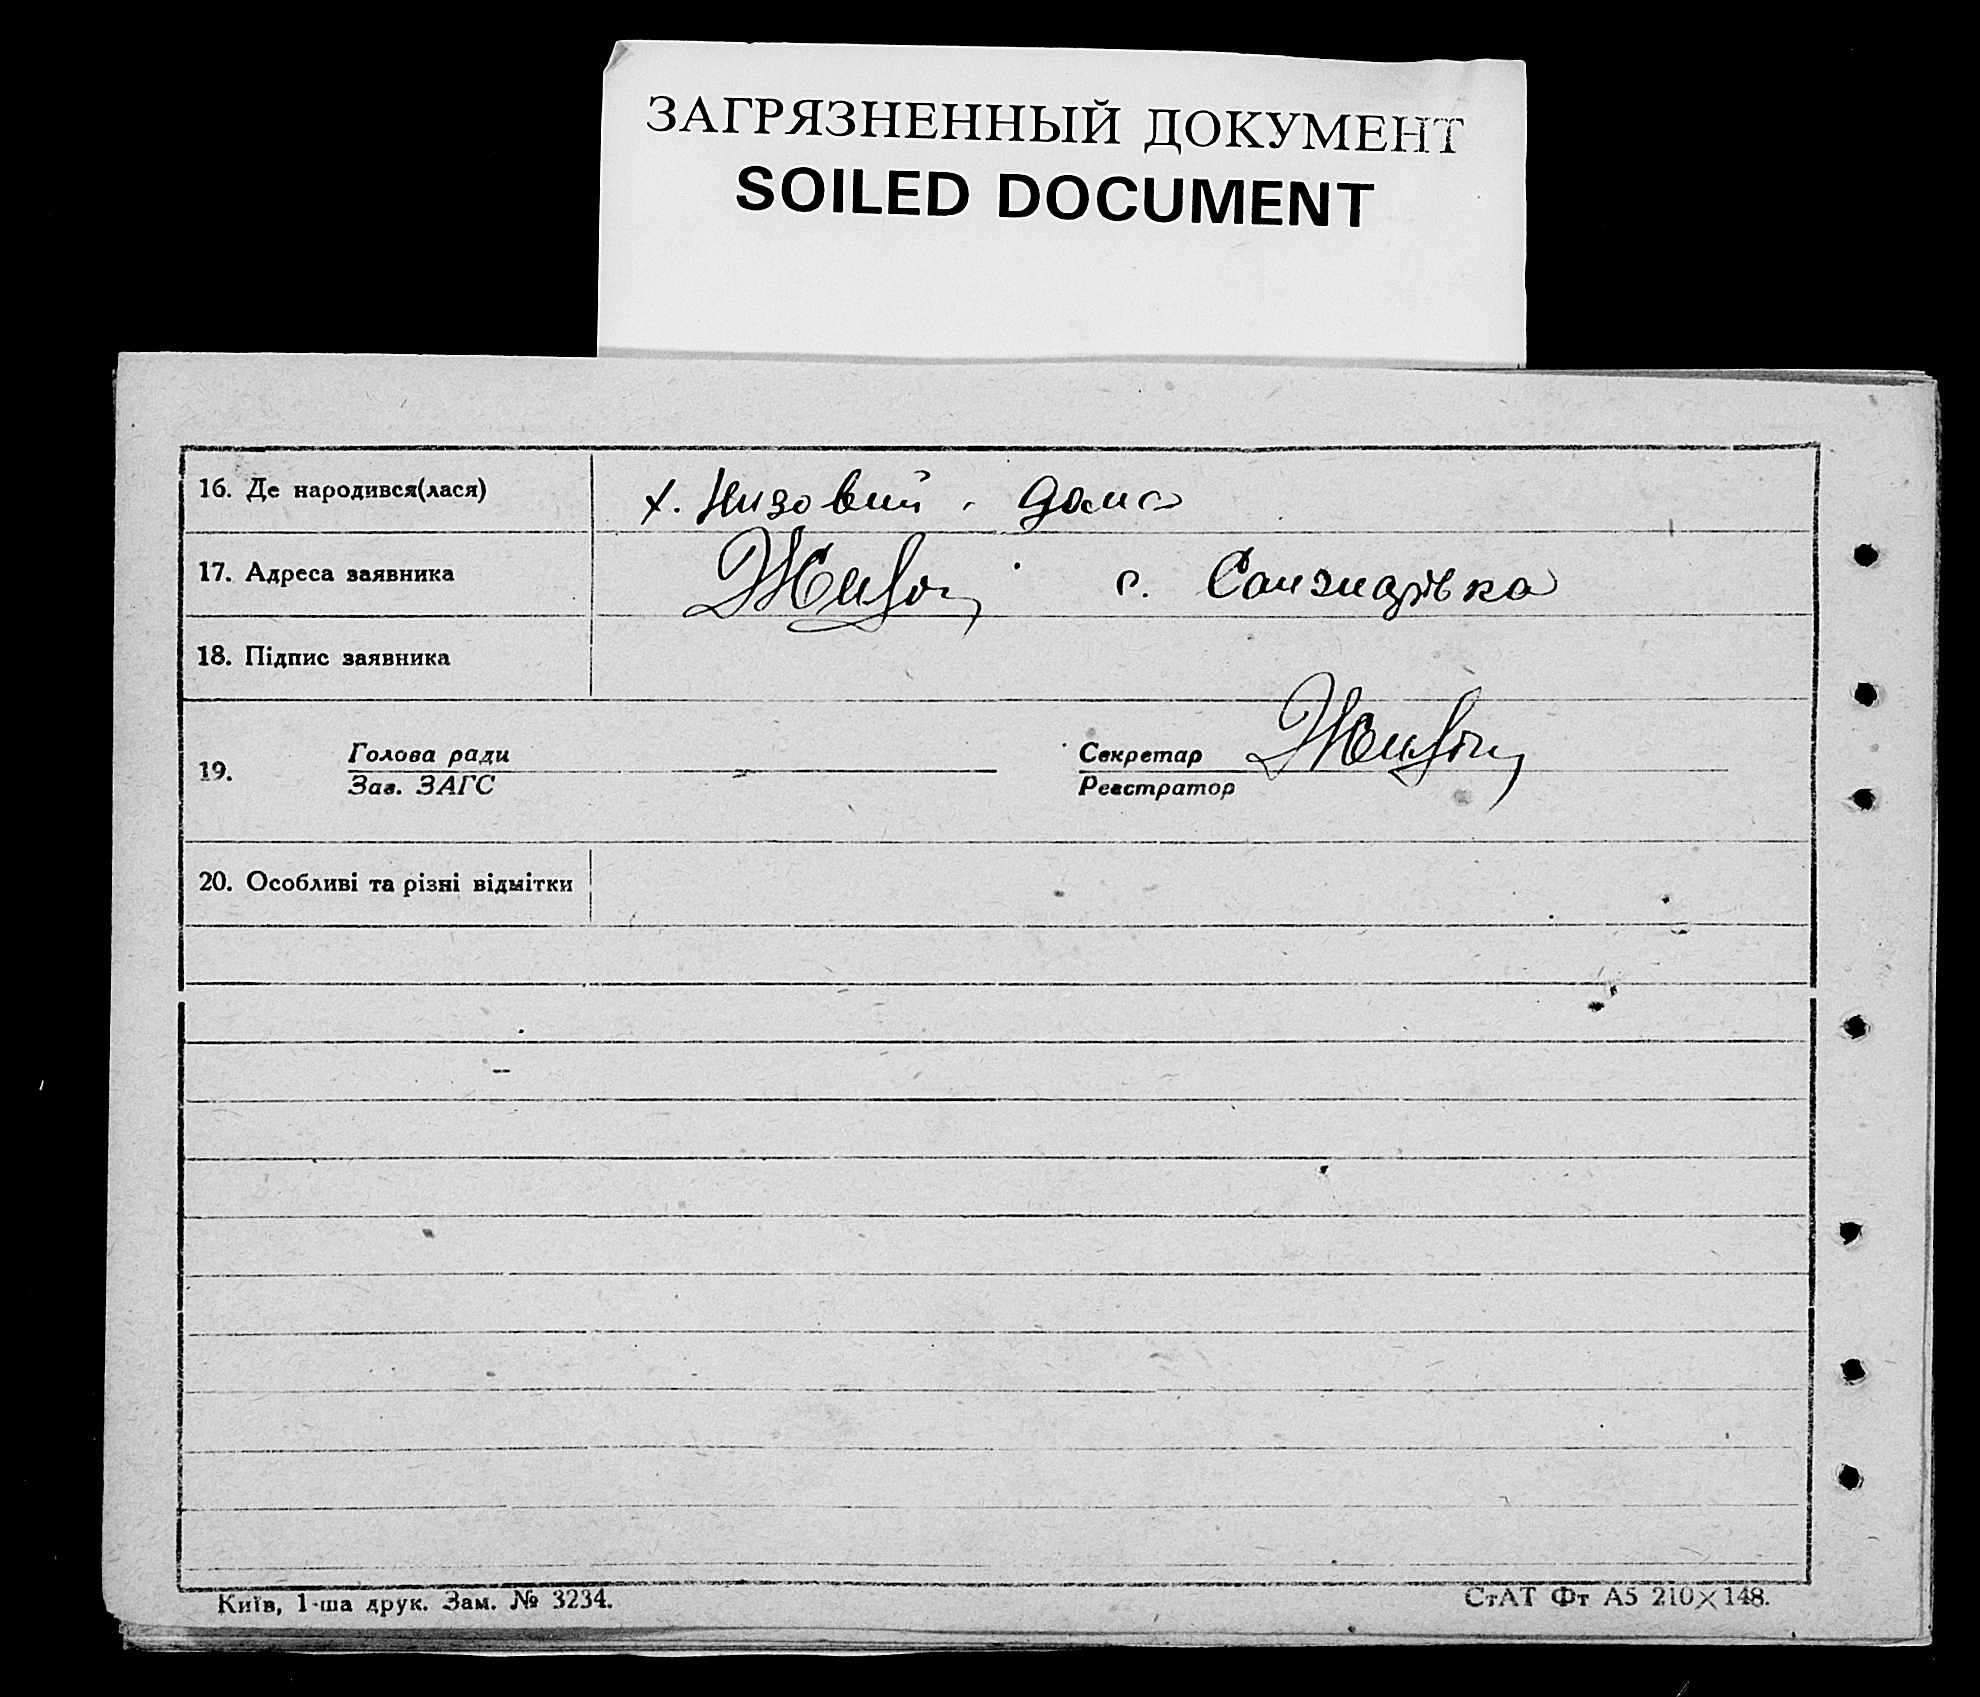 ЗАГРЯЗНЕННЫЙ ДОКУМЕНТ
SOILED DOCUMENT
16. Де народився(лася) х. Низовий. дома
17. Адреса заявника с.
18. Підпис заявника
19. Голова ради Секретар
Зав. ЗАГС Реєстратор
20. Особливі та різні відмітки
Київ, 1-ша друк. Зам. № 3234. СтАТ Фт А5 210×148.